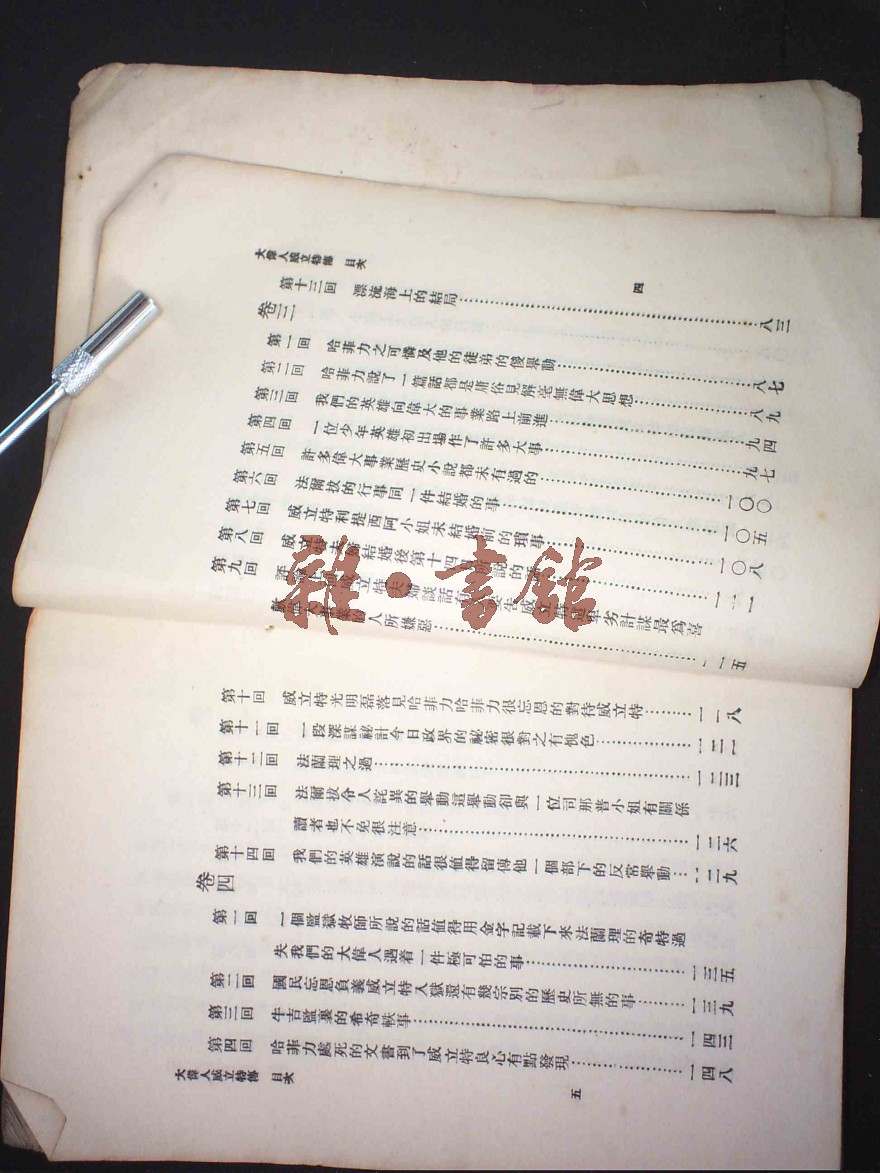 大偉人威立特傳 目次
四
第十三回 漂流海上的結局……八三
卷三
第一回 哈菲力之可憐及他的徒弟的傻舉動……八七
第二回 哈菲力說了一篇話都是庸俗見解毫無偉大思想……八九
第三回 我們的英雄向偉大的事業路上前進……九四
第四回 一位少年英雄初出場作了許多大事……九七
第五回 許多偉大事業歷史小說都未有過的……一〇〇
第六回 法爾拔的行事同一件結婚的事……一〇五
第七回 威立特利提西阿小姐未結婚前的瑣事……一〇八
第八回 威立特夫婦結婚後第十四日所說的話……一一一
第九回 威立特夫婦談話 威立特這卑劣計謀最為喜
歡偉大 的人所嫌惡……一一五
第十回 威立特光明磊落見哈菲力哈菲力很忘恩的對待威立特……一一八
第十一回 一段深謀祕計今日政界的祕密很對之有愧色……一二一
第十二回 法蘭理之過……一二三
第十三回 法爾拔令人詫異的舉動這舉動卻與一位司那普小姐有關係
讀者也不免很注意……一二六
第十四回 我們的英雄演說的話很值得留傳他一個部下的反常舉動……一二九
卷四
第一回 一個監獄牧師所說的話值得用金字記載下來法蘭理的奇特過
失我們的大偉人遇着一件極可怕的事……一三五
第二回 國民忘恩負義威立特入獄還有幾宗別的歷史所無的事……一三九
第三回 牛吉監裏的希奇軼事……一四三
第四回 哈菲力處死的文書到了威立特良心有點發現……一四八
大偉人威立特傳 目次
五
雜·書館